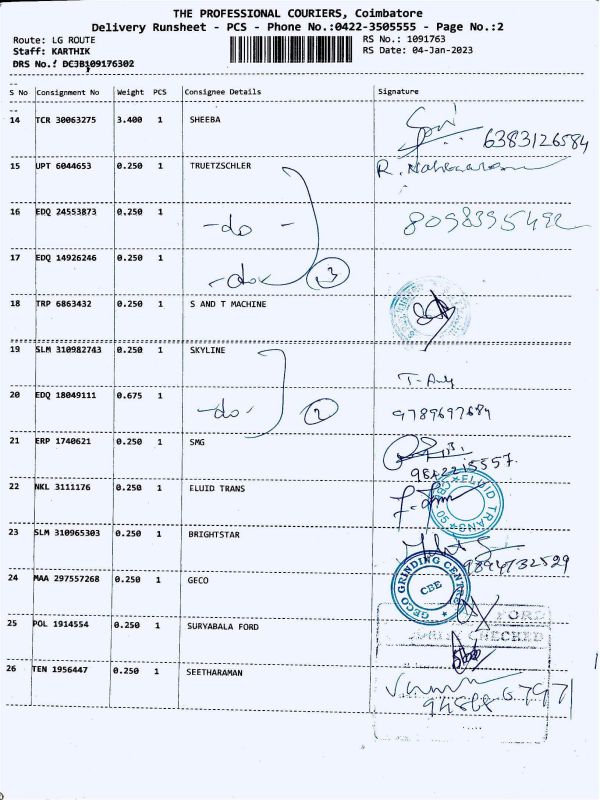 THE PROFESSIONAL COURIERS, Coimbatore
Delivery Runsheet - PCS - Phone No.:0422-3505555 - Page No.:2
Route: LG ROUTE RS No.: 1091763
Staff: KARTHIK RS Date: 04-Jan-2023
DRS No.: DCJB109176302
S No Consignment No Weight PCS Consignee Details Signature
14 TCR 30063275 3.400 1 SHEEBA
6383126584
15 UPT 6044653 0.250 1 TRUETZSCHLER
16 EDQ 24553873 0.250 1 -do-
8098395492
17 EDQ 14926246 0.250 1 -do- 3
18 TRP 6863432 0.250 1 S AND T MACHINE
19 SLM 310982743 0.250 1 SKYLINE
20 EDQ 18049111 0.675 1 -do- 2
9789697684
21 ERP 1740621 0.250 1 SMG
9842215557
22 NKL 3111176 0.250 1 ELUID TRANS
ELUID TRANS
23 SLM 310965303 0.250 1 BRIGHTSTAR
9894732529
24 MAA 297557268 0.250 1 GECO
GECO GRINDING CENTRE
CBE
25 POL 1914554 0.250 1 SURYABALA FORD
FORD
CHECKED
26 TEN 1956447 0.250 1 SEETHARAMAN